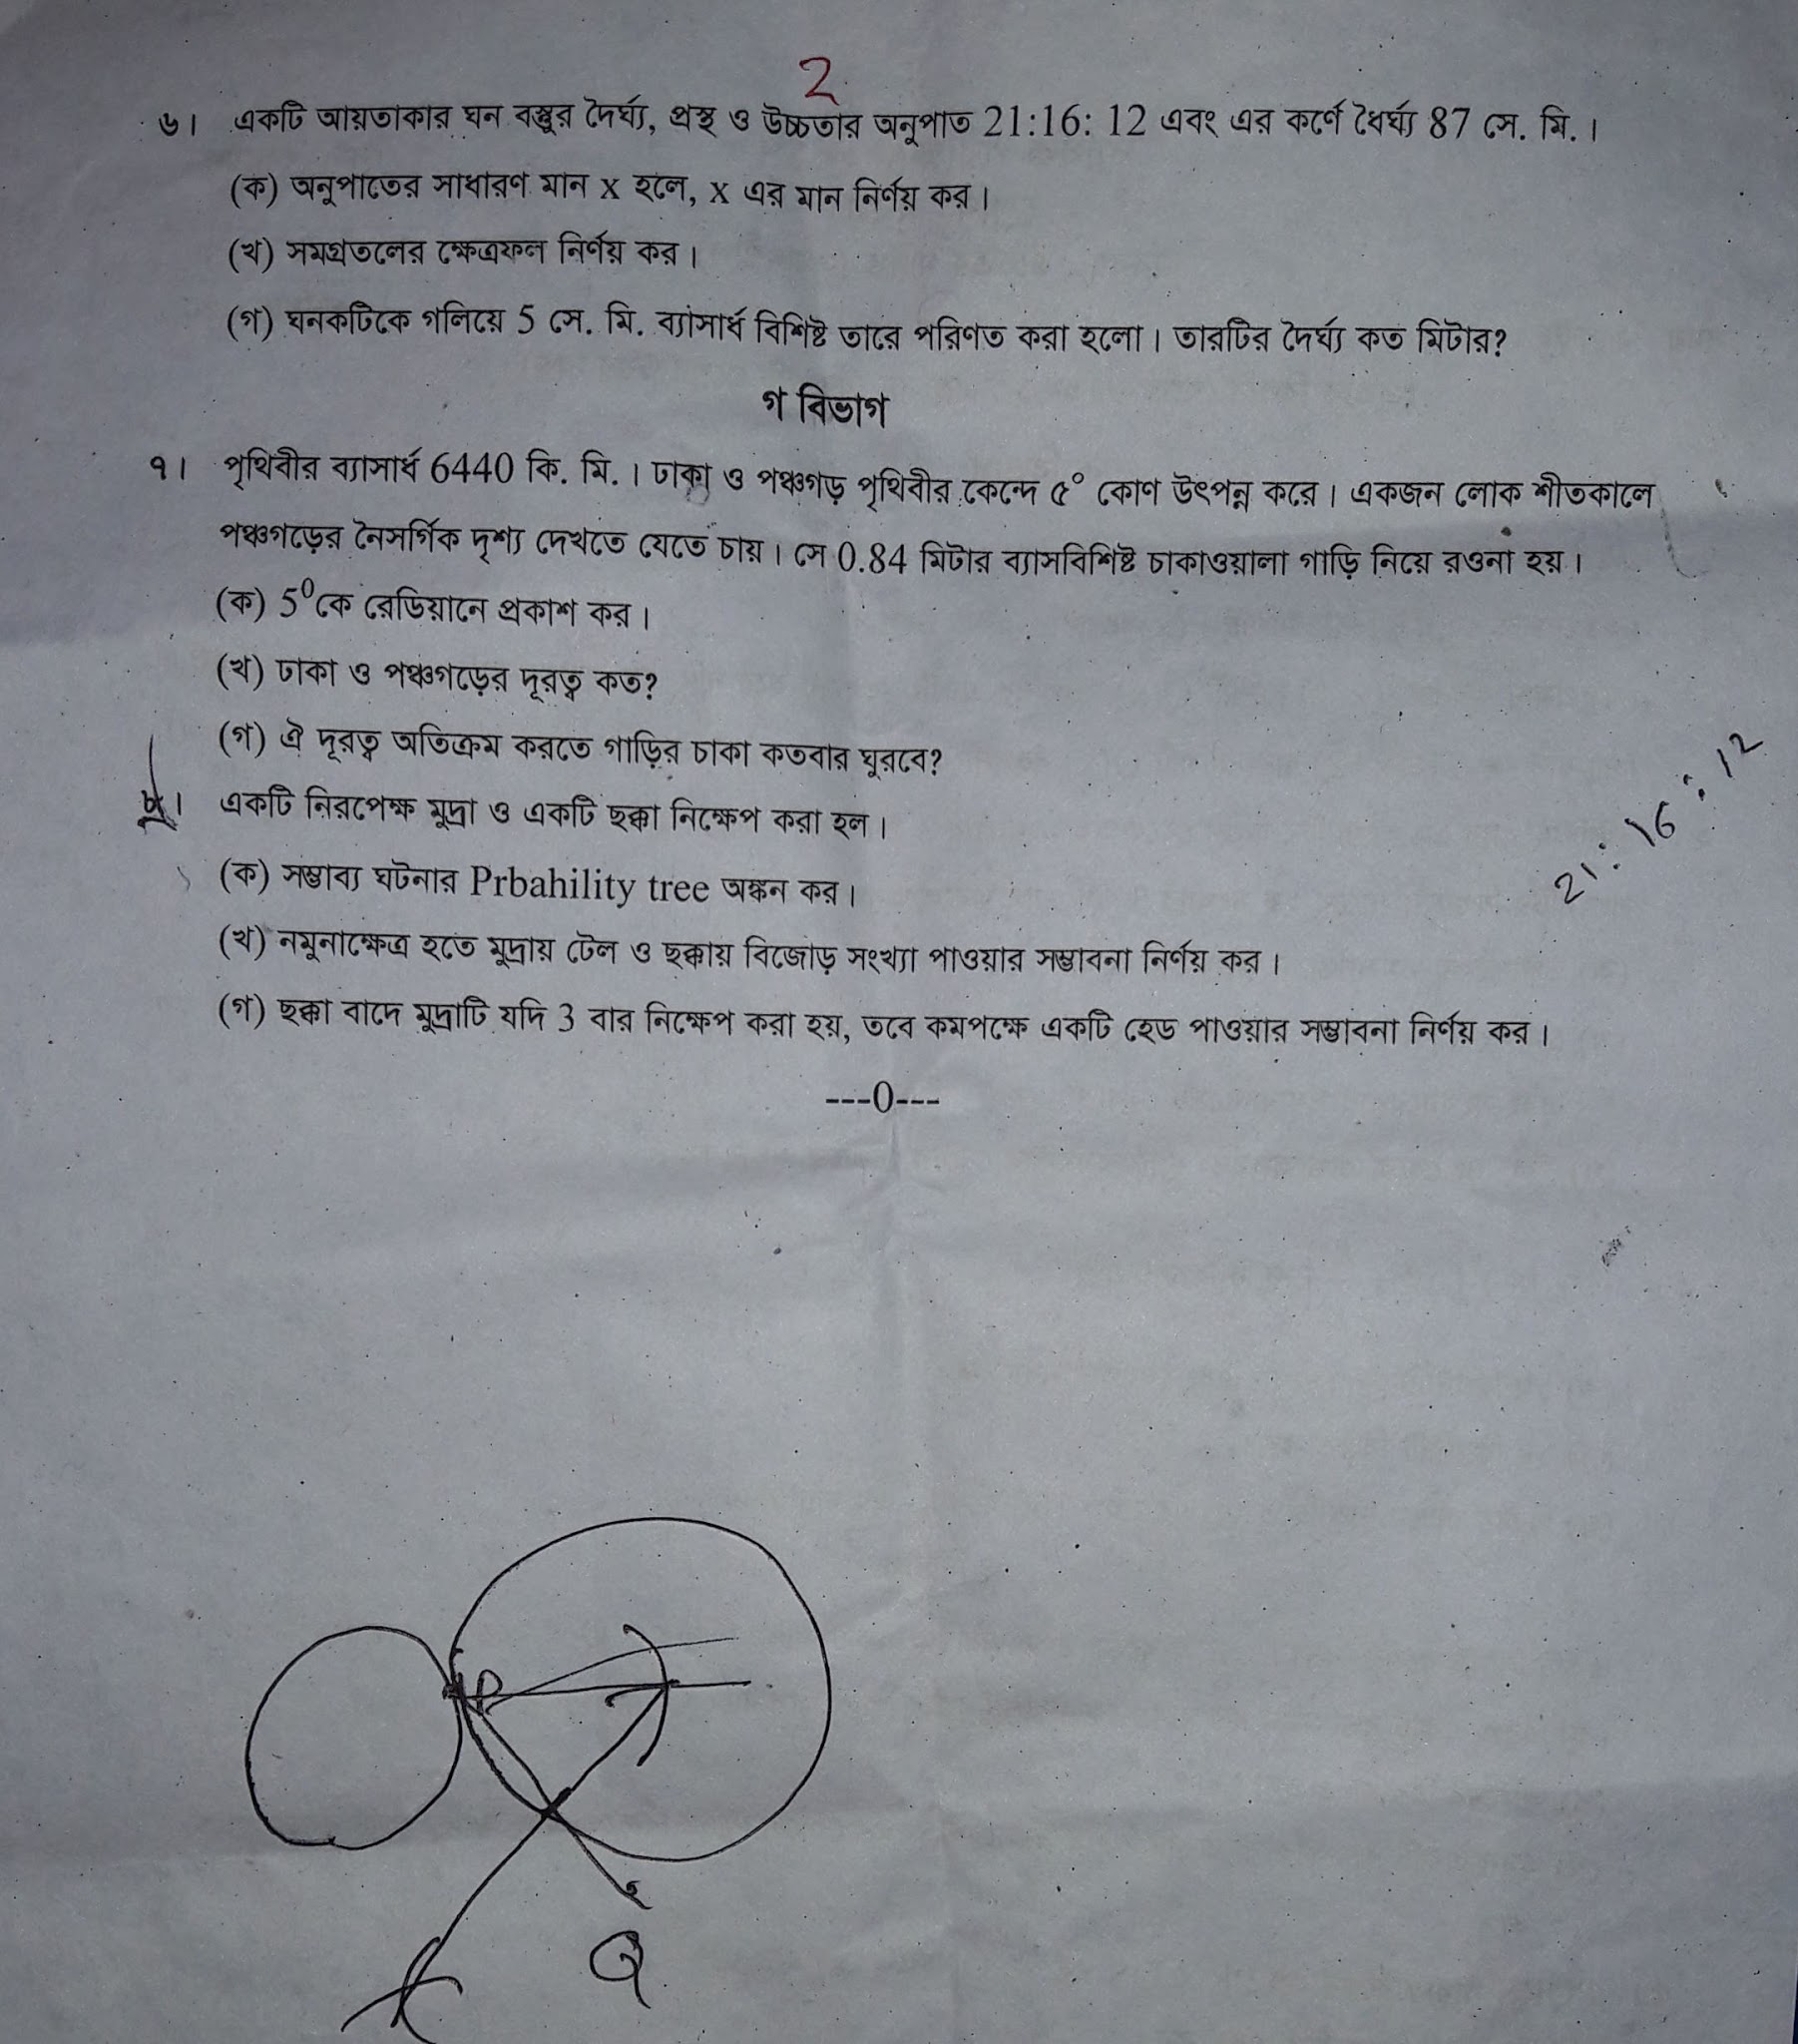 2
৬। একটি আয়তাকার ঘন বস্তুর দৈর্ঘ্য, প্রস্থ ও উচ্চতার অনুপাত 21:16: 12 এবং এর কর্ণে ধৈর্ঘ্য 87 সে. মি. ।
(ক) অনুপাতের সাধারণ মান x হলে, x এর মান নির্ণয় কর।
(খ) সমগ্রতলের ক্ষেত্রফল নির্ণয় কর।
(গ) ঘনকটিকে গলিয়ে 5 সে. মি. ব্যাসার্ধ বিশিষ্ট তারে পরিণত করা হলো। তারটির দৈর্ঘ্য কত মিটার?
গ বিভাগ
৭। পৃথিবীর ব্যাসার্ধ 6440 কি. মি. । ঢাকা ও পঞ্চগড় পৃথিবীর কেন্দে ৫° কোণ উৎপন্ন করে। একজন লোক শীতকালে
পঞ্চগড়ের নৈসর্গিক দৃশ্য দেখতে যেতে চায়। সে 0.84 মিটার ব্যাসবিশিষ্ট চাকাওয়ালা গাড়ি নিয়ে রওনা হয়।
(ক) 5⁰কে রেডিয়ানে প্রকাশ কর।
(খ) ঢাকা ও পঞ্চগড়ের দূরত্ব কত?
(গ) ঐ দূরত্ব অতিক্রম করতে গাড়ির চাকা কতবার ঘুরবে?
৮। একটি নিরপেক্ষ মুদ্রা ও একটি ছক্কা নিক্ষেপ করা হল।
21: 16: 12
(ক) সম্ভাব্য ঘটনার Prbahility tree অঙ্কন কর।
(খ) নমুনাক্ষেত্র হতে মুদ্রায় টেল ও ছক্কায় বিজোড় সংখ্যা পাওয়ার সম্ভাবনা নির্ণয় কর।
(গ) ছক্কা বাদে মুদ্রাটি যদি 3 বার নিক্ষেপ করা হয়, তবে কমপক্ষে একটি হেড পাওয়ার সম্ভাবনা নির্ণয় কর।
---0---
P
Q